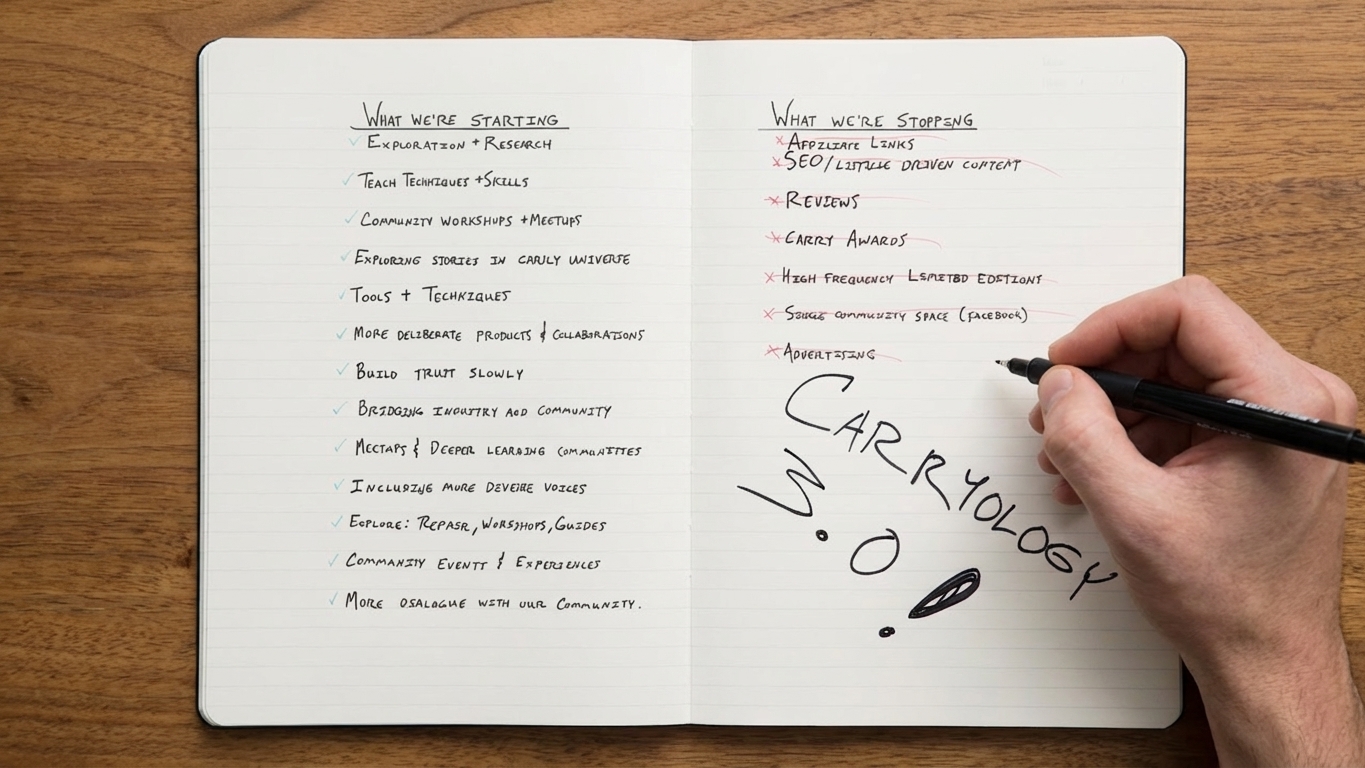 WHAT WE'RE STARTING
✓ EXPLORATION + RESEARCH
✓ TEACH TECHNIQUES + SKILLS
✓ COMMUNITY WORKSHUPS + MEETUPS
✓ EXPLORING STORIES IN CARLLY UNIVERSE
✓ TOOLS + TECHKIQUES
✓ MORE DELIBERATE PRODUCTS & COLLABORATIONS
✓ BUILD TRUIT SLOWLY
✓ BRIDGING INOUITRY AOD COMMUNITY
✓ MECTAPS & DEEPER LEARNING COMMUNITTES
✓ INCLUSING MURE DEVERIE VOICES
✓ EOPLORE: REPASR, WORSSHOPS, GUIDES
✓ COMMANISY EVENTT & EXPERIENCES
✓ MORE OSALOGUE WITH UUR COMMUNITY.
WHAT WE'RE STOPPING
× AFFZLIATE LINKS
× SEO/LISTICLE DRIVEN CONTENT
× REVIEWS
× CARRY AWARDS
× HIGH FREQUENCY LSMITBD EDSTIONS
× COMMUNITY SPACE (FACEBOOK)
× ADVERTISING
CARRYOLOGY
3.0!